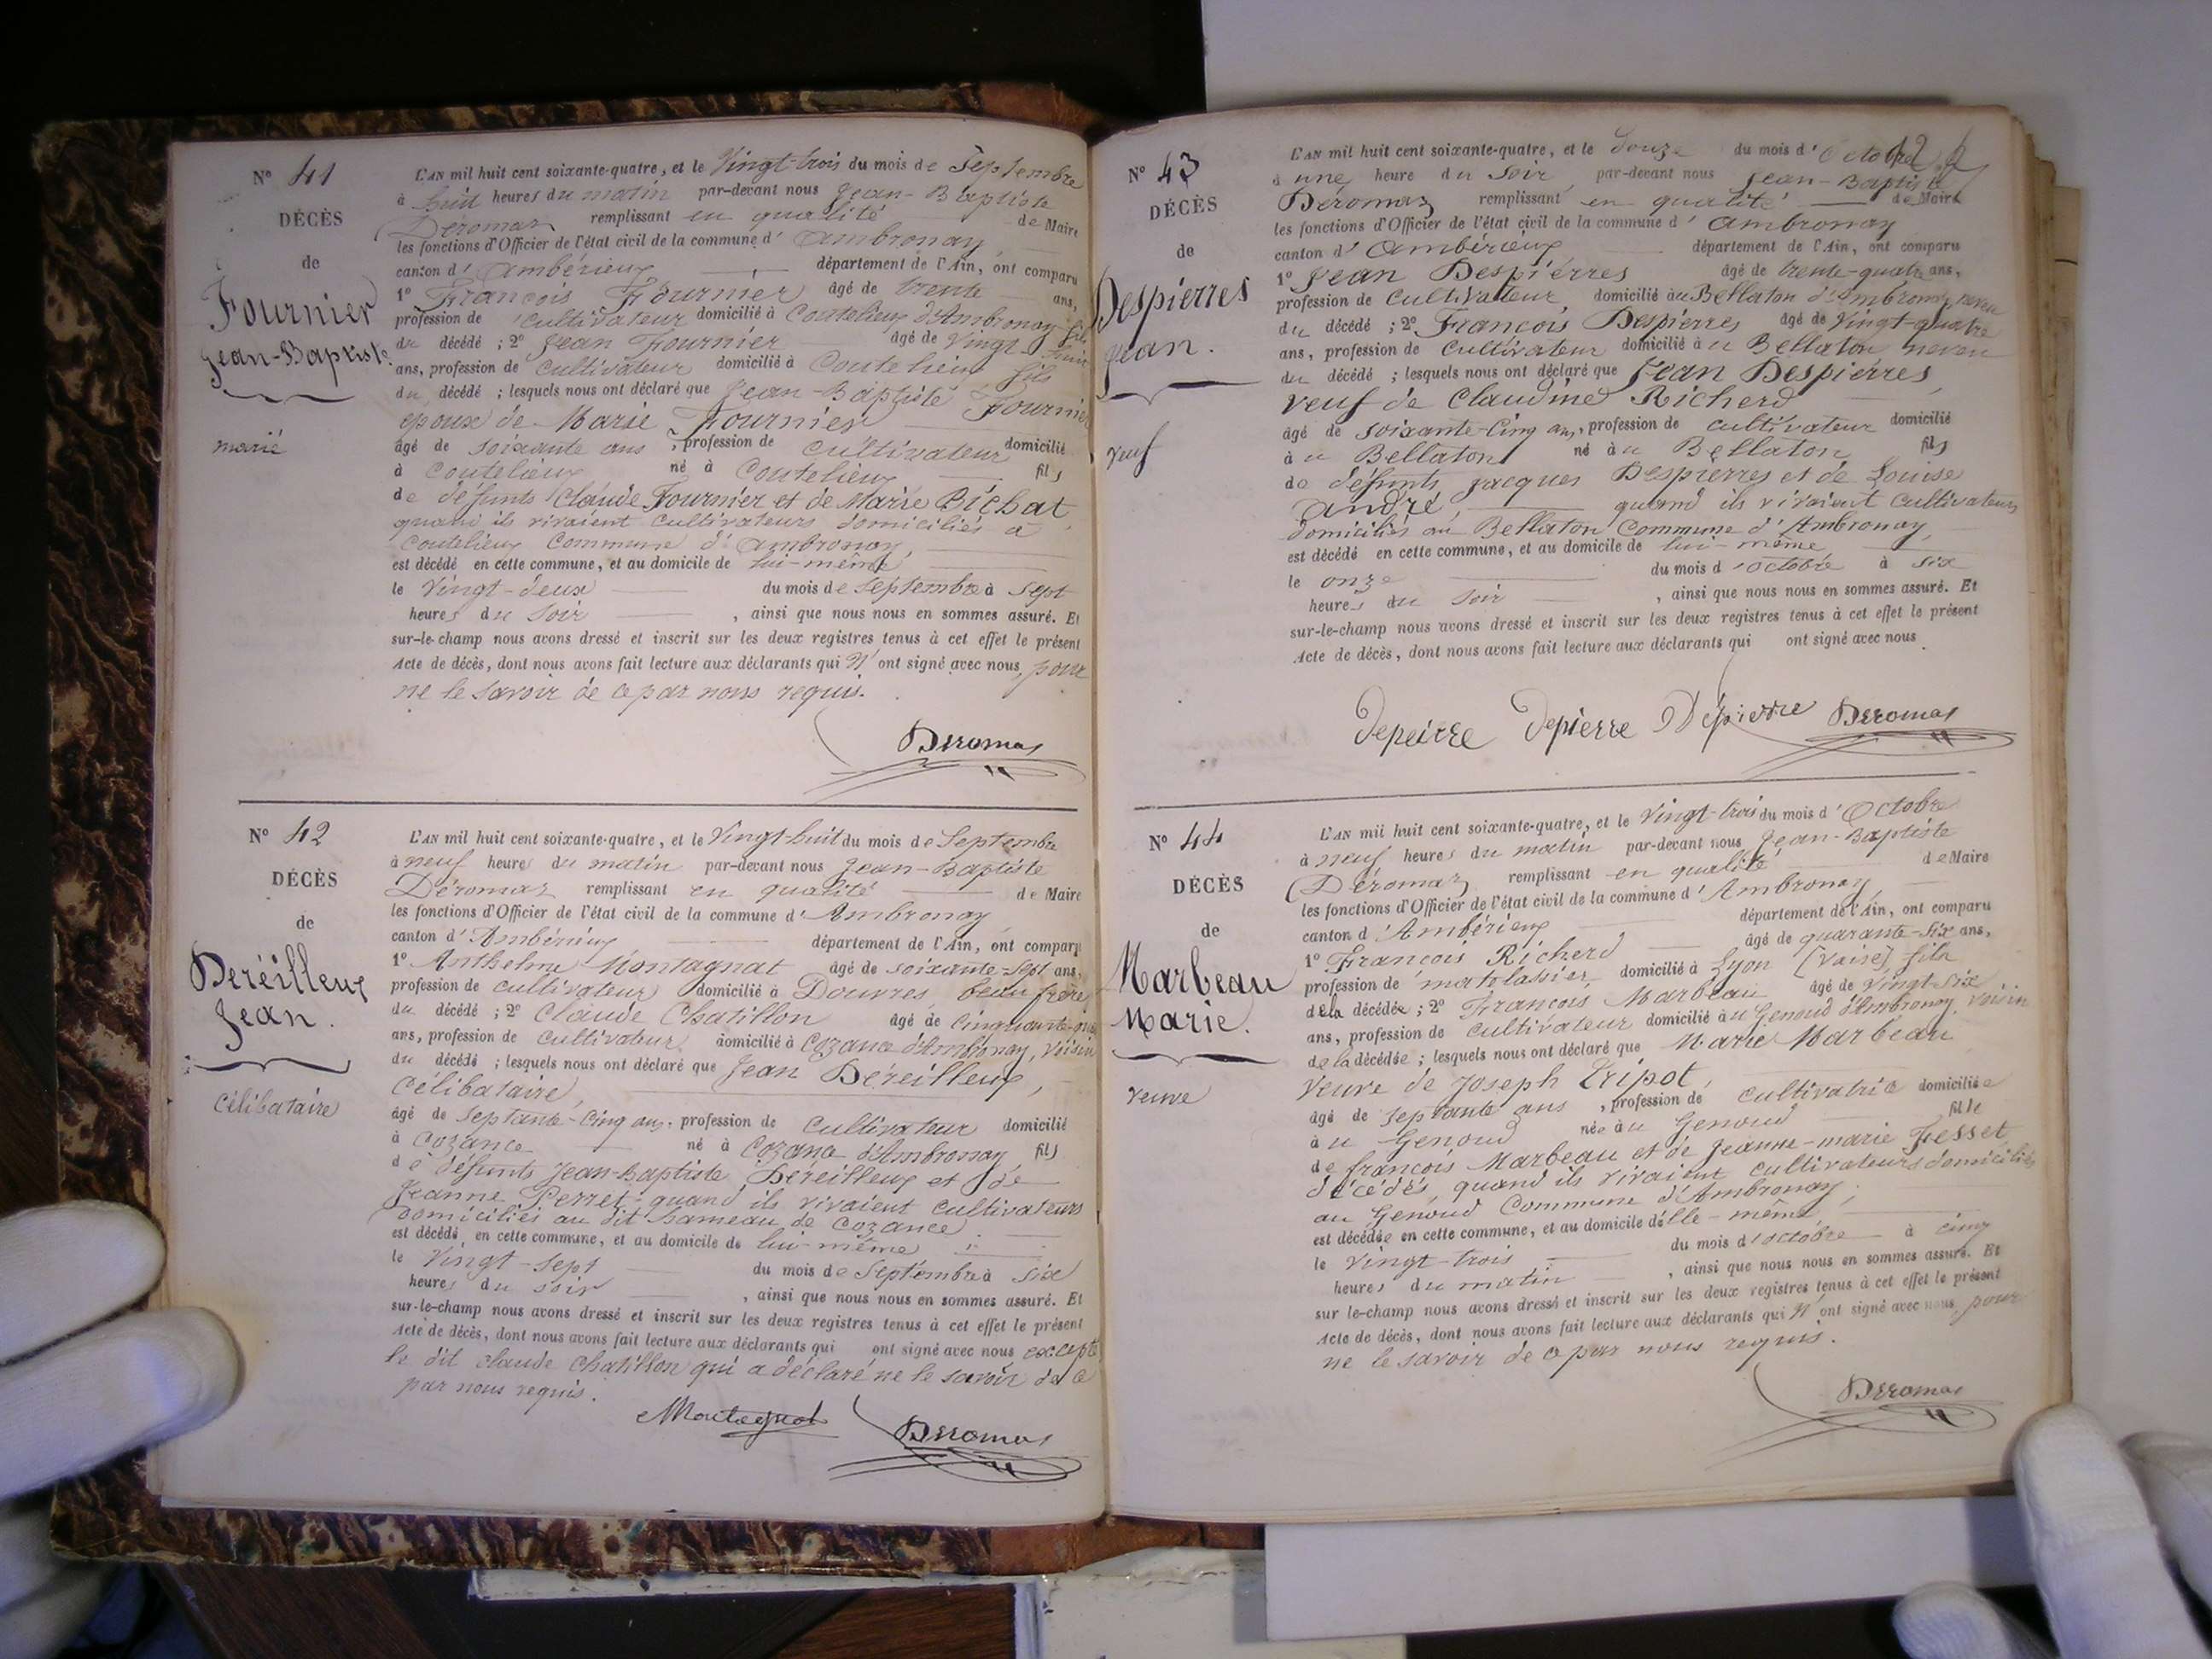 N° 41
DÉCÈS
de
Fournier
Jean-Baptiste
marié
L'AN mil huit cent soixante-quatre, et le Vingt-trois du mois de Septembre
à huit heures du matin par-devant nous Jean-Baptiste
Déromas remplissant en qualité de Maire
les fonctions d'Officier de l'état civil de la commune d'Ambronay,
canton d'Ambérieux département de l'Ain, ont comparu
1° François Fournier âgé de trente ans,
profession de cultivateur domicilié à Coutelieux d'Ambronay fils
du décédé ; 2° Jean Fournier âgé de Vingt-huit
ans, profession de cultivateur domicilié à Coutelieux fils
du décédé ; lesquels nous ont déclaré que Jean-Baptiste Fournier
époux de Marie Fournier
âgé de soixante ans, profession de cultivateur domicilié
à Coutelieux né à Coutelieux fils
de défunts Claude Fournier et de Marie Bichat,
quand ils vivaient cultivateurs domiciliés à
Coutelieux Commune d'Ambronay,
est décédé en cette commune, et au domicile de lui-même
le Vingt-deux du mois de Septembre à Sept
heures du Soir, ainsi que nous nous en sommes assuré. Et
sur-le-champ nous avons dressé et inscrit sur les deux registres tenus à cet effet le présent
Acte de décès, dont nous avons fait lecture aux déclarants qui N'ont signé avec nous, pour
ne le savoir de ce par nous requis.
Deromas
N° 42
DÉCÈS
de
Déréilleux
Jean.
Célibataire
L'AN mil huit cent soixante-quatre, et le Vingt-huit du mois de Septembre
à neuf heures du matin par-devant nous Jean-Baptiste
Déromas remplissant en qualité de Maire
les fonctions d'Officier de l'état civil de la commune d'Ambronay
canton d'Ambérieux département de l'Ain, ont comparu
1° Anthelme Montagnat âgé de soixante-sept ans,
profession de cultivateur domicilié à Douvres, beau frère
du décédé ; 2° Claude Chatillon âgé de Cinquante-onze
ans, profession de cultivateur domicilié à Cozance d'Ambronay, voisin
du décédé ; lesquels nous ont déclaré que Jean Déreilleux,
célibataire,
âgé de septante-cinq ans, profession de cultivateur domicilié
à Cozance né à Cozance d'Ambronay fils
de défunts Jean-Baptiste Déreilleux et de
Jeanne Perret quand ils vivaient cultivateurs
domiciliés au dit hameau de Cozance
est décédé en cette commune, et au domicile de lui-même
le Vingt-sept du mois de Septembre à six
heures du soir, ainsi que nous nous en sommes assuré. Et
sur-le-champ nous avons dressé et inscrit sur les deux registres tenus à cet effet le présent
Acte de décès, dont nous avons fait lecture aux déclarants qui ont signé avec nous excepté
le dit claude Chatillon qui a déclaré ne le savoir de ce
par nous requis.
Montagnat Deromas
N° 43
DÉCÈS
de
Despierres
Jean.
veuf
L'AN mil huit cent soixante-quatre, et le Douze du mois d'Octobre
à une heure du Soir par-devant nous Jean-Baptiste
Déromas remplissant en qualité de Maire
les fonctions d'Officier de l'état civil de la commune d'Ambronay
canton d'Ambérieux département de l'Ain, ont comparu
1° Jean Despierres âgé de trente-quatre ans,
profession de Cultivateur domicilié au Bellaton d'Ambronay, neveu
du décédé ; 2° François Despierres âgé de Vingt-quatre
ans, profession de Cultivateur domicilié au Bellaton, neveu
du décédé ; lesquels nous ont déclaré que Jean Despierres,
veuf de Claudine Richerd
âgé de soixante-Cinq ans, profession de cultivateur domicilié
au Bellaton né au Bellaton fils
de défunts Jacques Despierres et de Louise
André, quand ils vivaient cultivateurs
domiciliés au Bellaton Commune d'Ambronay,
est décédé en cette commune, et au domicile de lui-même
le onze du mois d'octobre à six
heures du Soir, ainsi que nous nous en sommes assuré. Et
sur-le-champ nous avons dressé et inscrit sur les deux registres tenus à cet effet le présent
Acte de décès, dont nous avons fait lecture aux déclarants qui ont signé avec nous.
Depeirre Depierre Dépierre Deromas
N° 44
DÉCÈS
de
Marbeau
Marie.
veuve
L'AN mil huit cent soixante-quatre, et le Vingt-trois du mois d'Octobre
à neuf heures du matin par-devant nous Jean-Baptiste
Déromas remplissant en qualité de Maire
les fonctions d'Officier de l'état civil de la commune d'Ambronay,
canton d'Ambérieux département de l'Ain, ont comparu
1° François Richerd âgé de quarante-six ans,
profession de matelassier domicilié à Lyon (Vaise) fils
de la décédée ; 2° François Marbeau âgé de Vingt-six
ans, profession de Cultivateur domicilié au Genoud d'Ambronay, voisin
de la décédée ; lesquels nous ont déclaré que Marie Marbeau
veuve de Joseph Tripot,
âgé de septante ans, profession de cultivatrice domiciliée
au Genoud née au Genoud fille
de françois Marbeau et de Jeanne-marie Fesset
décédés, quand ils vivaient cultivateurs domiciliés
au Genoud Commune d'Ambronay,
est décédée en cette commune, et au domicile d'elle-même
le Vingt-trois du mois d'octobre à cinq
heures du matin, ainsi que nous nous en sommes assuré. Et
sur le-champ nous avons dressé et inscrit sur les deux registres tenus à cet effet le présent
Acte de décès, dont nous avons fait lecture aux déclarants qui N'ont signé avec nous, pour
ne le savoir de ce par nous requis.
Deromas